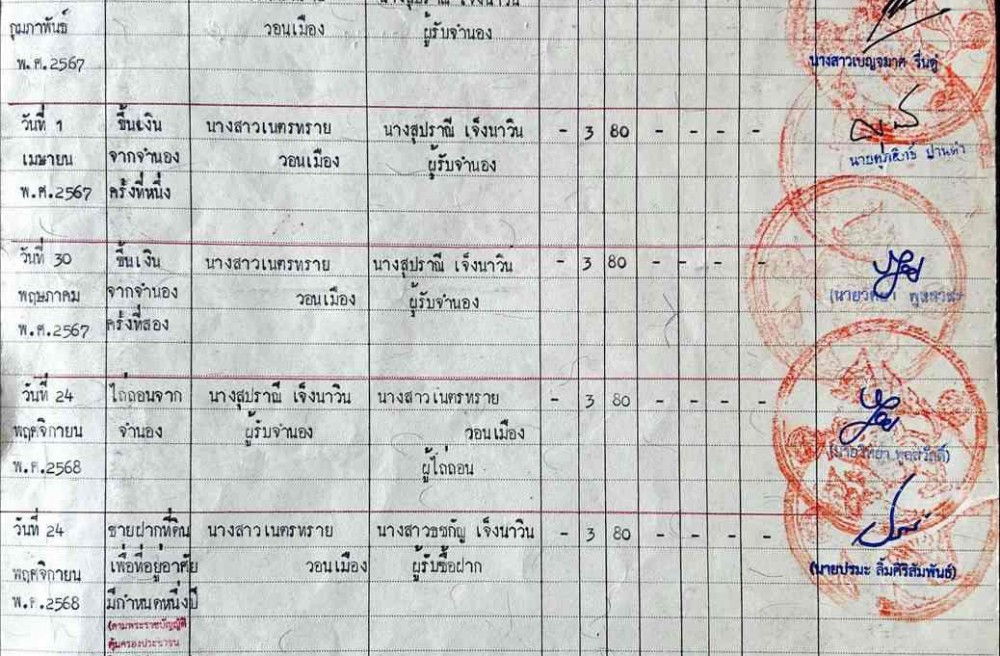 กุมภาพันธ์ วอนเมือง ผู้รับจำนอง
พ.ศ.2567 นางสาวเบญจมาศ รื่นชู
วันที่ 1 ขึ้นเงิน นางสาวเนตรทราย นางสุปราณี เจ็งนาวิน - 3 80 - - - -
เมษายน จากจำนอง วอนเมือง ผู้รับจำนอง
พ.ศ.2567 ครั้งที่หนึ่ง
วันที่ 30 ขึ้นเงิน นางสาวเนตรทราย นางสุปราณี เจ็งนาวิน - 3 80 - - - -
พฤษภาคม จากจำนอง วอนเมือง ผู้รับจำนอง
พ.ศ.2567 ครั้งที่สอง
วันที่ 24 ไถ่ถอนจาก นางสุปราณี เจ็งนาวิน นางสาวเนตรทราย - 3 80 - - - -
พฤศจิกายน จำนอง ผู้รับจำนอง วอนเมือง
พ.ศ.2568 ผู้ไถ่ถอน (นายวิทยา พูลสวัสดิ์)
วันที่ 24 ขายฝากที่ดิน นางสาวเนตรทราย นางสาวธชกัญ เจ็งนาวิน - 3 80 - - - -
พฤศจิกายน เพื่อที่อยู่อาศัย วอนเมือง ผู้รับซื้อฝาก (นายปรมะ ลิ้มศิริสัมพันธ์)
พ.ศ.2568 มีกำหนดหนึ่งปี
(ตามพระราชบัญญัติ
คุ้มครองประชาชน